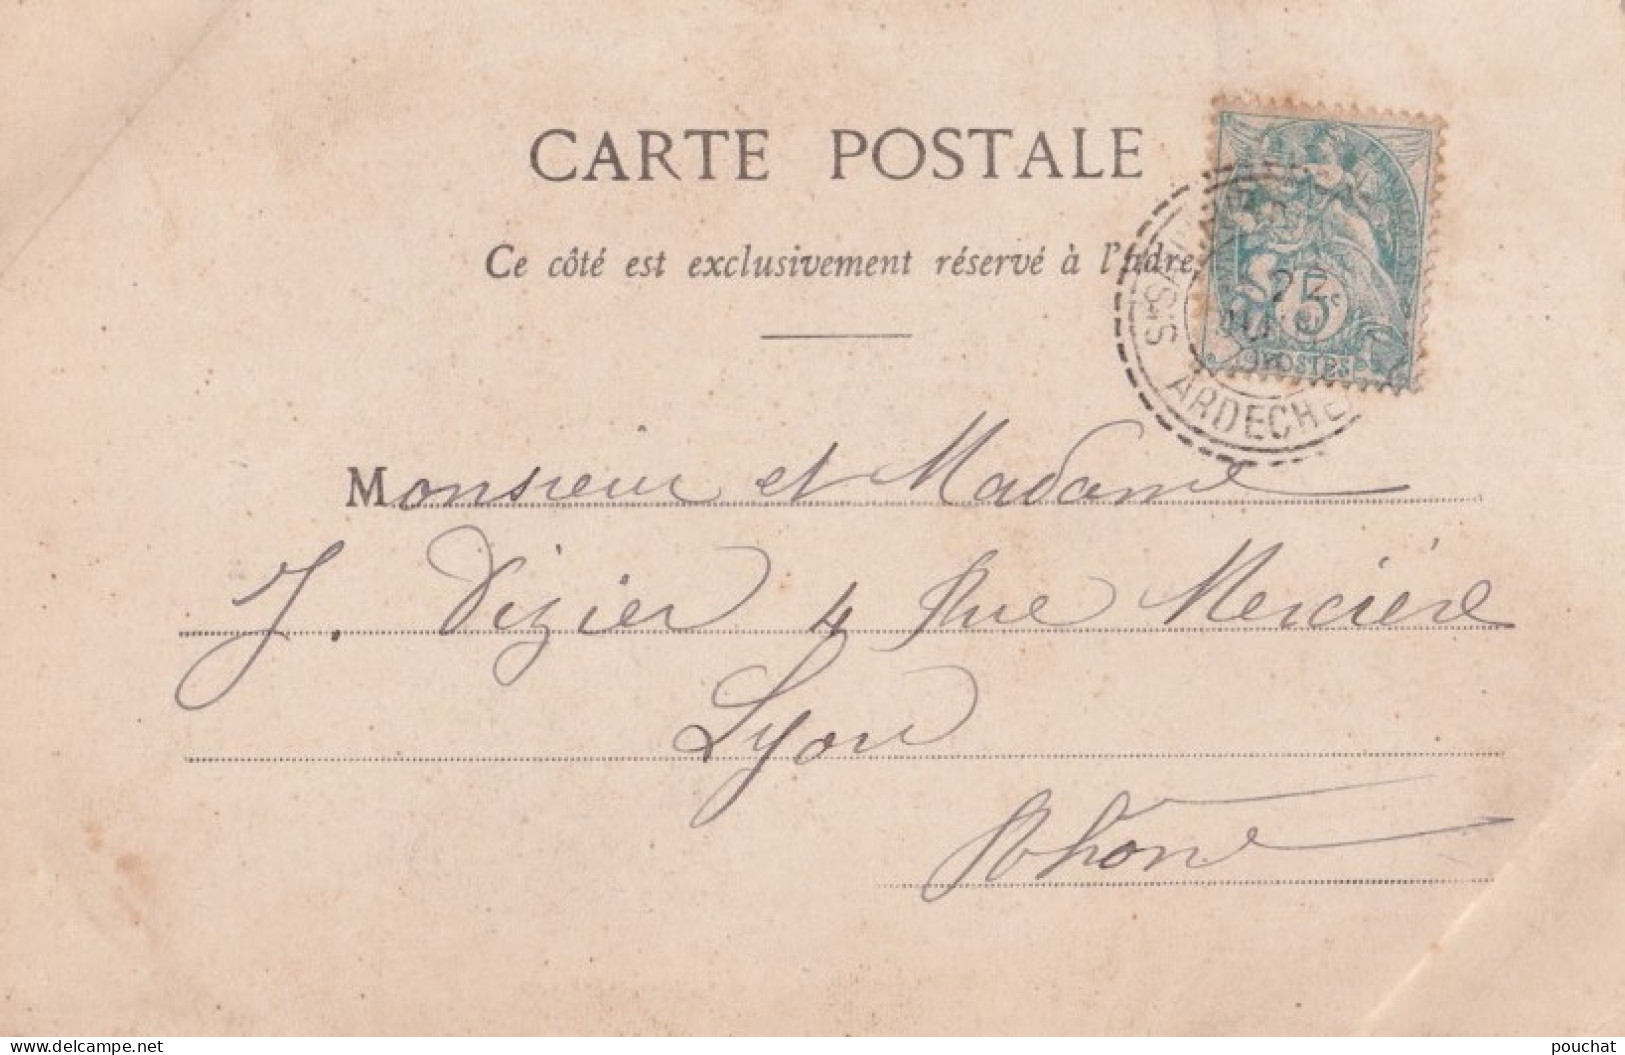 CARTE POSTALE
Ce côté est exclusivement réservé à l'adre
5c
POSTES
25
ARDECHE
Monsieur et Madame
J. Vizier 4 Rue Mercière
Lyon
Rhône
www.delcampe.net
pouchat